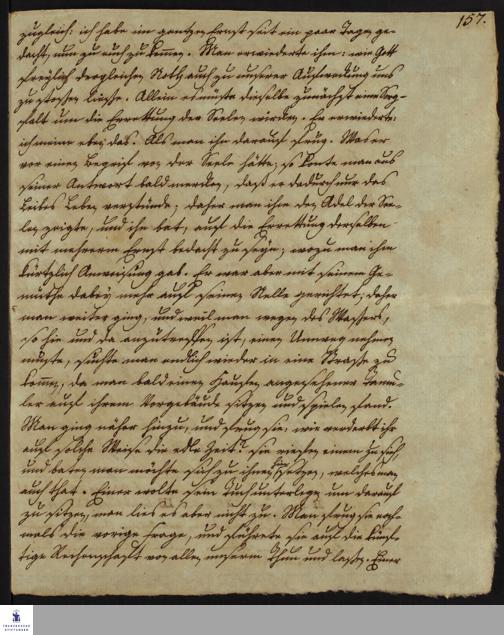 157.
zugleich: ich habe im gantzen Ernst seit ein paar Tagen ge-
dacht, nun zu euch zu kommen. Man erwiederte ihm: wie Gott
freylich dergleichen Noth auch zu unserer Aufweckung uns
zu stossen liesse. Allein es müste dieselbe zunächst eine Sorg-
falt um die Errettung der Seelen wircken. Er erwiederte:
ich meine eben das. Als man ihn darauf frug. Was er
vor einen Begriff von der Seele hätte; so konte man aus
seiner Antwort bald mercken, daß er dadurch nur das
Leibes Leben verstünde; daher man ihm den Adel der See-
len zeigte, und ihn bat, auf die Errettung derselben
mit mehrerm Ernst bedacht zu seyn; wozu man ihm
kürtzlich Anweisung gab. Er war aber mit seinem Ge-
muthe dabey mehr auf seinen Nelle gerichtet; daher
man weiter ging, und weil man wegen des Wassers,
so hie und da anzutreffen ist, einen Umweg nehmen
müste, suchte man endlich wieder in eine Strasse zu
kommen, da man bald einen Hauffen angesehener Tamu-
ler auf ihrem Vorgebäude sitzen und spielen fand.
Man ging näher hinzu, und frug sie: wie verderbt ihr
auf solche Weise die edle Zeit? sie riefen einem zu sich
und baten man möchte sich zu ihnen setzen, welches man
auch that. Einer wolte sein Tuch unterlegen um darauf
zu sitzen, man lies es aber nicht zu. Man frug sie noch-
mals die vorige Frage, und führete sie auf die künf-
tige Rechenschaft von allen unserm Thun und lassen. Einer
FRANCKESCHE
STIFTUNGEN